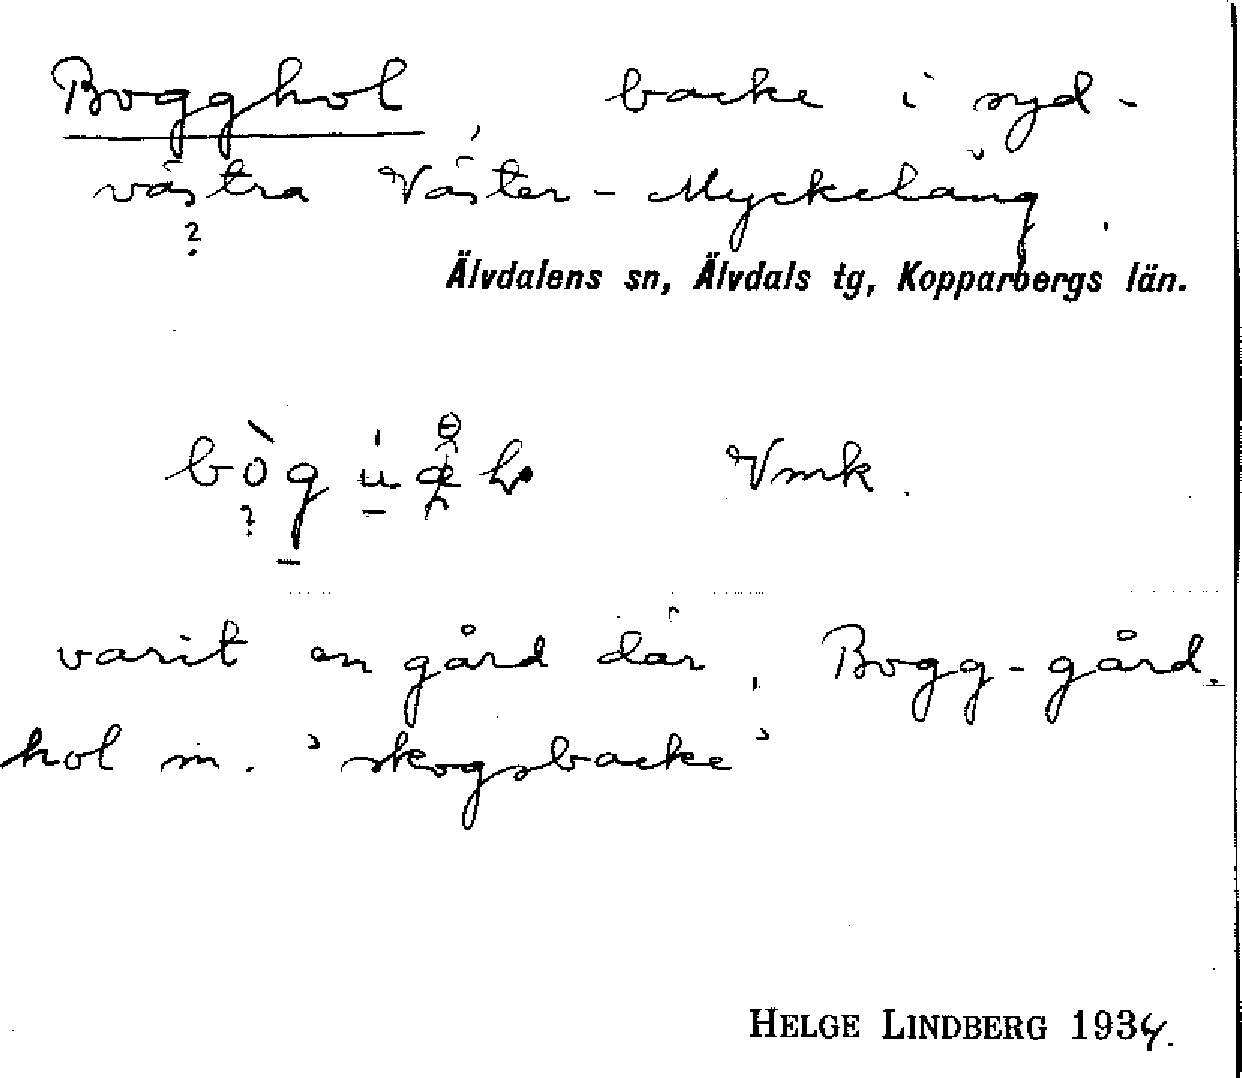 Bogghol backe i syd-
västra Väster-Myckeläng.
Älvdalens sn, Älvdals tg, Kopparbergs län.
Vmk.
varit en gård där, Bogg-gård.
hol m. 'skogsbacke'
HELGE LINDBERG 1934.